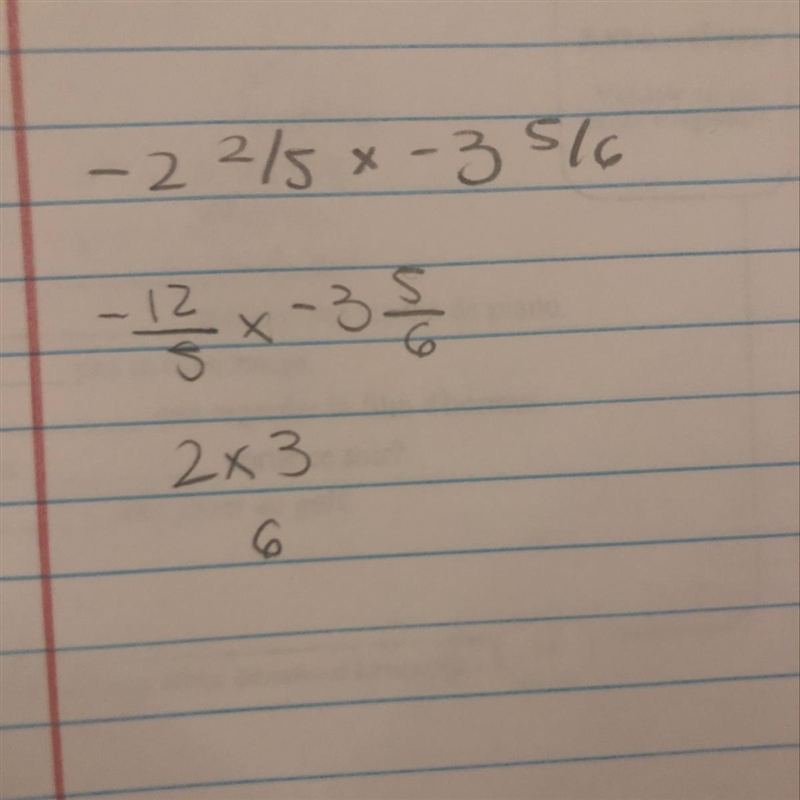 -2 2/5 x -3 5/6
-12/5 x -3 5/6
2 x 3
6